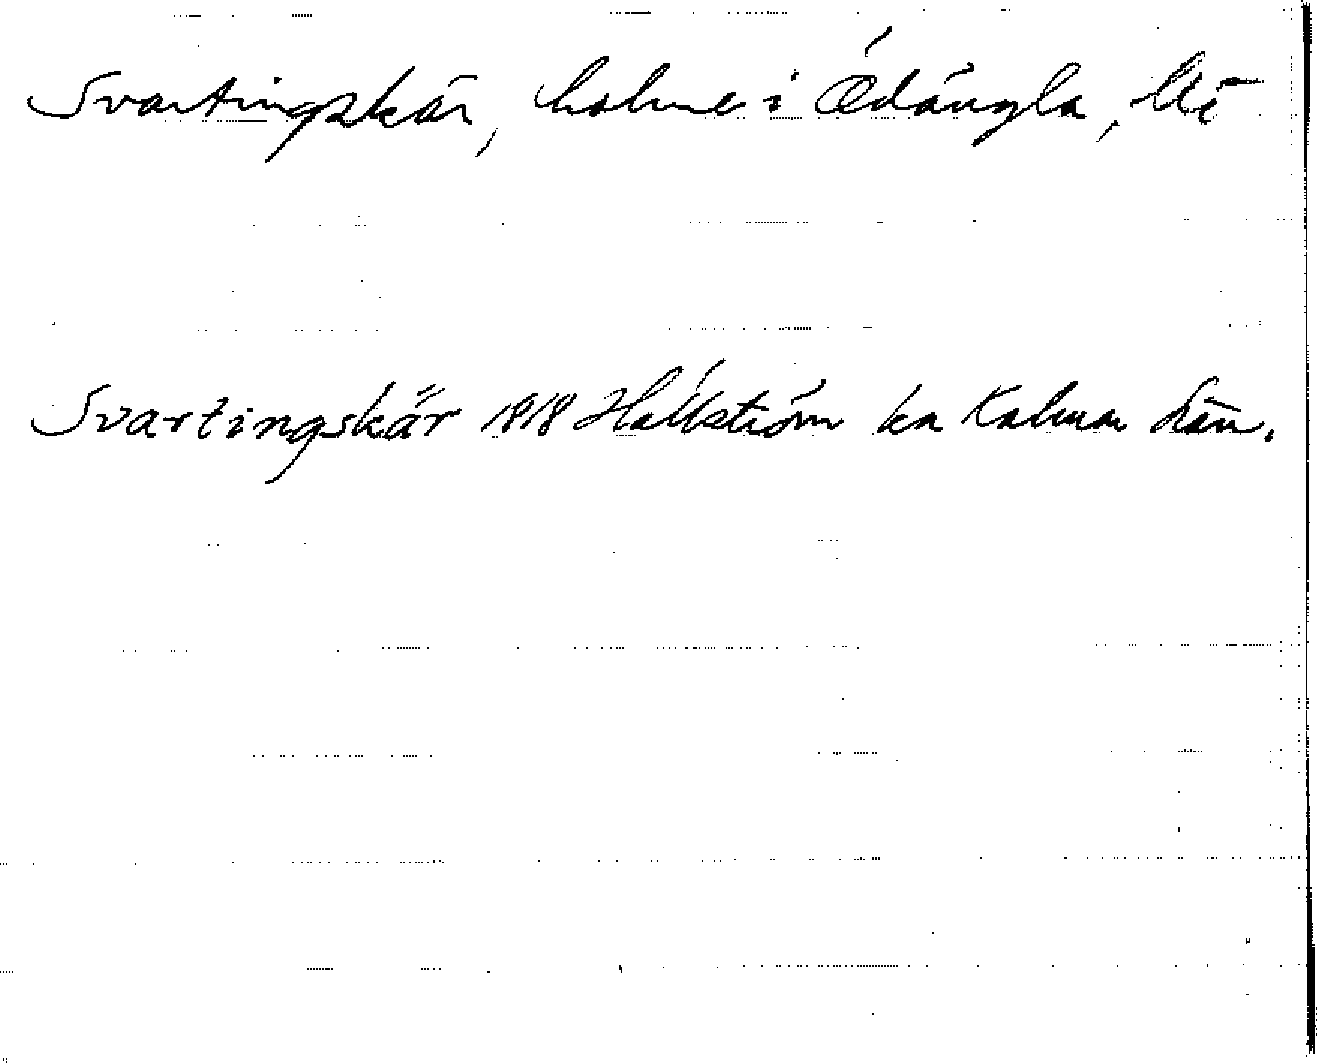 Svartingskär, holme i Ödängla, Mö
Svartingskär 1818 Hallström ka Kalmar län.